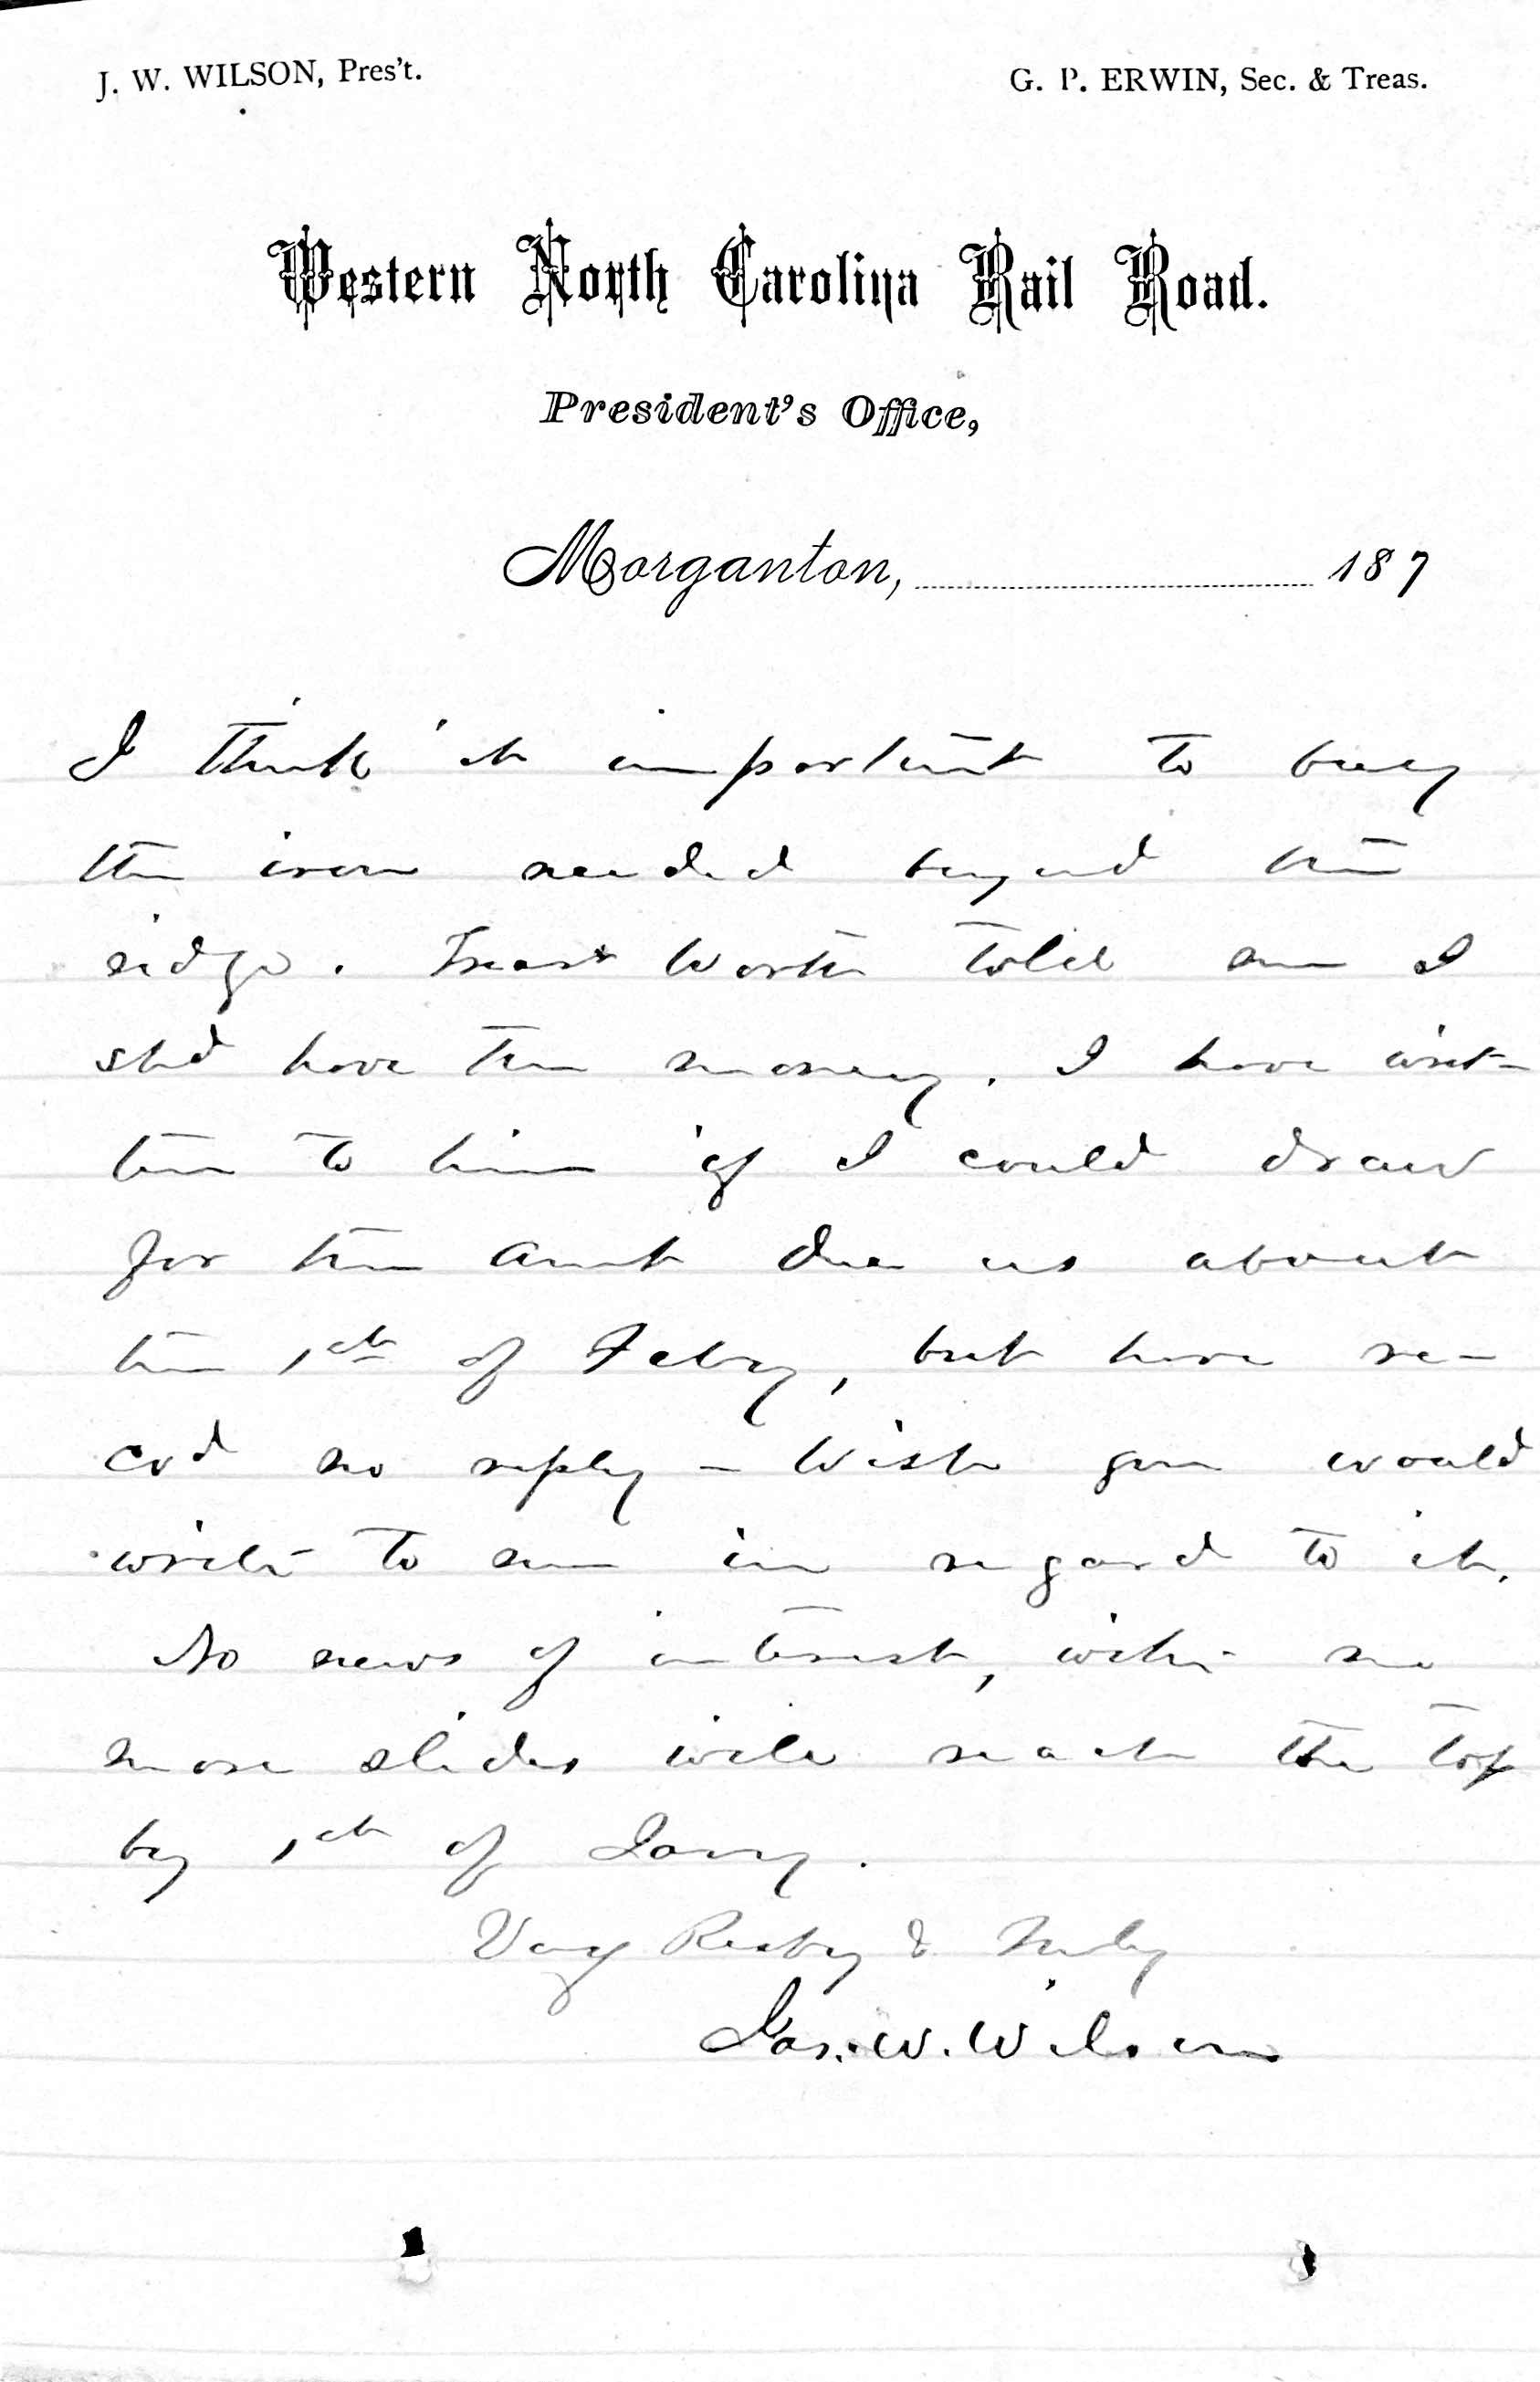 J. W. WILSON, Pres't.
G. P. ERWIN, Sec. & Treas.
Western North Carolina Rail Road.
President's Office,
Morganton, 187
I think it important to buy
the iron needed beyond the
ridge. Treasr Worth told me I
shd have the money. I have writ-
ten to him if I could draw
for the amt due us about
the 1st of Feby, but have re-
cvd no reply – Wish you would
write to me in regard to it.
No news of interest, with no
more slides will reach the top
by 1st of Jany.
Very Resty & Truly
Jas. W. Wilson